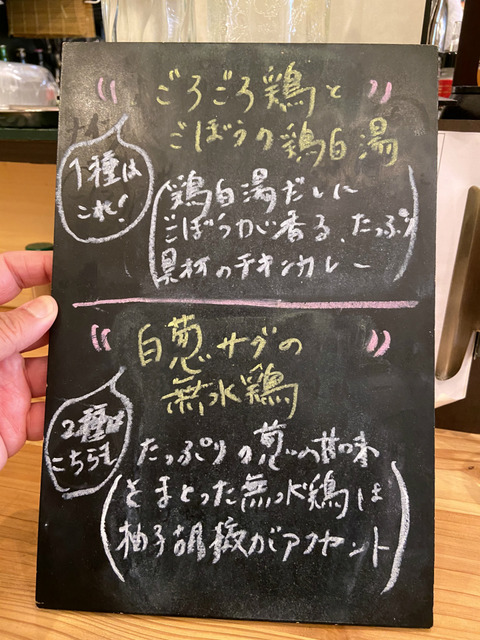 ごろごろ鶏と
ごぼうの鶏白湯
1種は
これ!
(鶏白湯だしに
ごぼうが香る、たっぷり
具材のチキンカレー)
白葱サグの
無水鶏
2種は
こちらも
(たっぷりの葱の甘味
をまとった無水鶏は
柚子胡椒がアクセント)